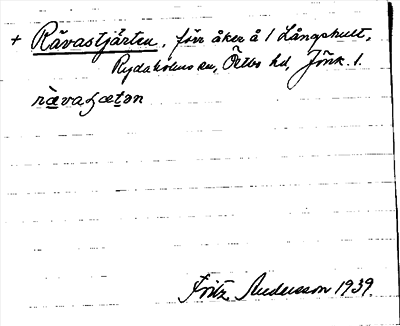 + Rävastjärten, förr åker å 1 Långshult,
Rydaholms sn, Östbo hd, Jönk. l.
rävaʂætən
Fritz Andersson 1939.